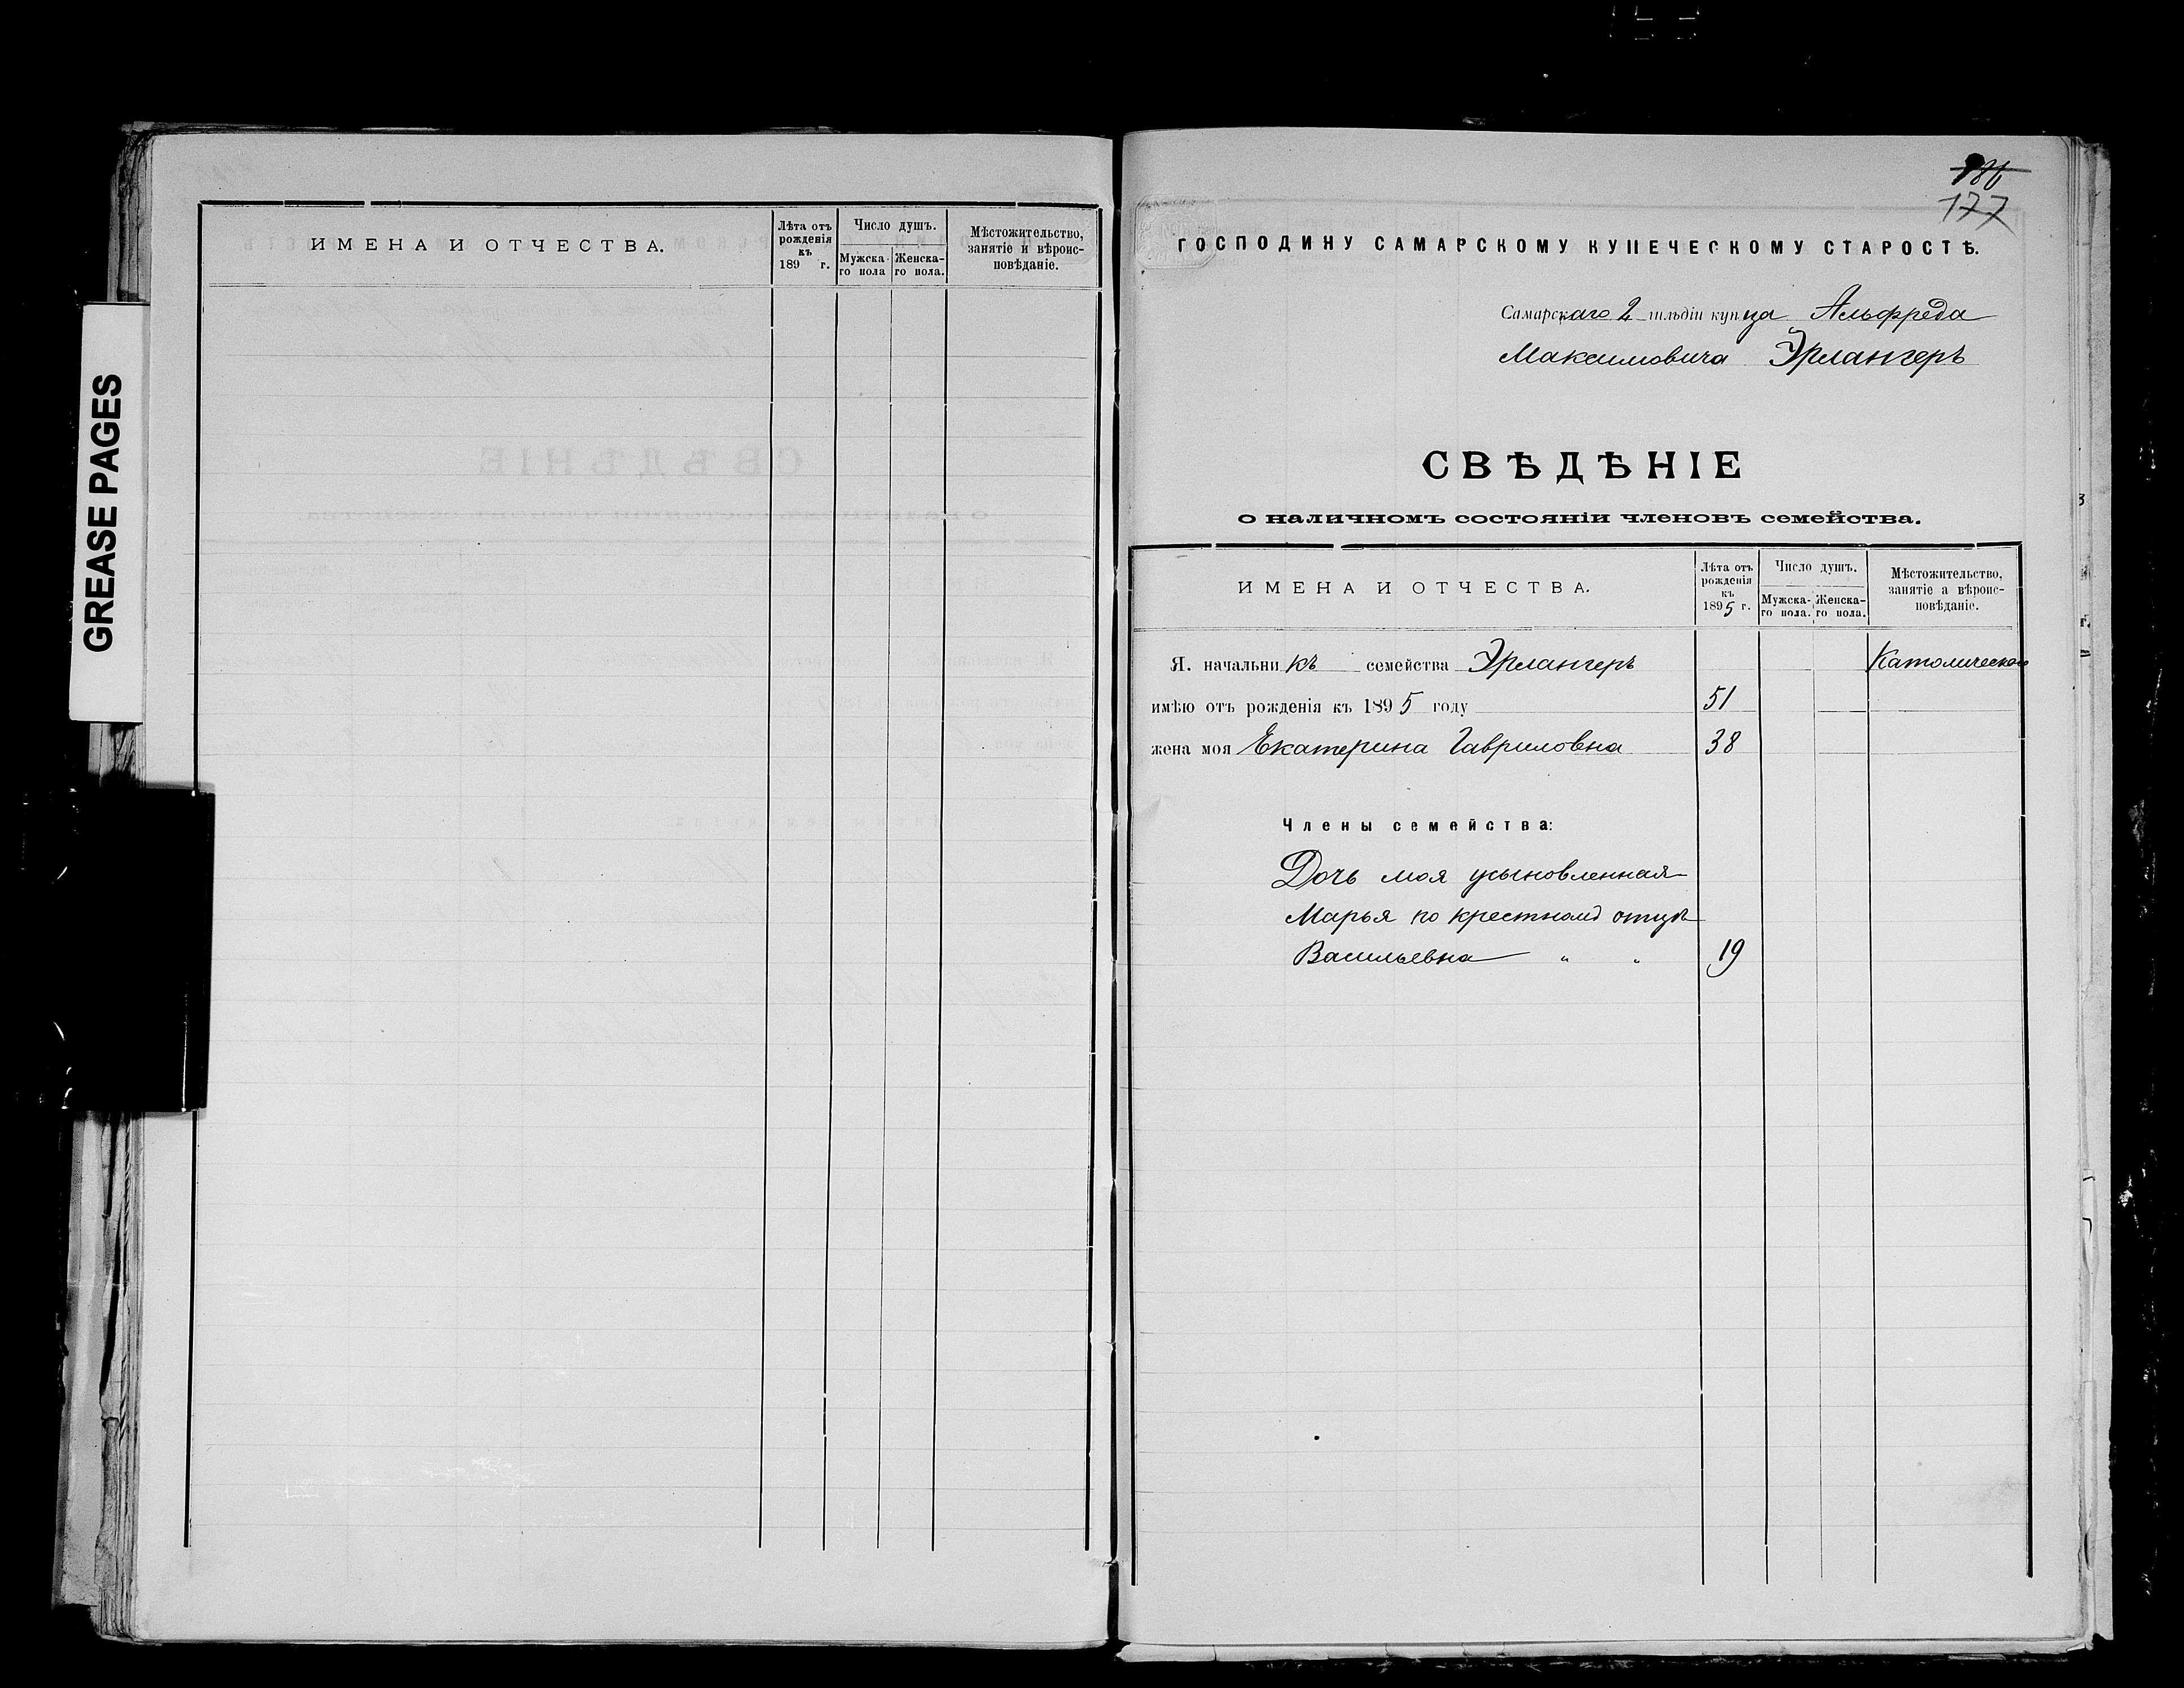 GREASE PAGES
ИМЕНА И ОТЧЕСТВА.
Лѣта отъ
рожденія
къ
189 г.
Число душъ.
Мужска-
го пола
Женска-
го пола.
Мѣстожительство,
занятіе и вѣроис-
повѣданіе.
186
177
ГОСПОДИНУ САМАРСКОМУ КУПЕЧЕСКОМУ СТАРОСТѢ.
Самарскаго 2 гильдіи купца Альфреда
Максимовича Эрлангеръ
СВѢДѢНІЕ
о наличномъ состояніи членовъ семейства.
ИМЕНА И ОТЧЕСТВА.
Лѣта отъ
рожденія
къ
1895 г.
Число душъ.
Мужска-
го пола.
Женска-
го пола.
Мѣстожительство,
занятіе а вѣроис-
повѣданіе.
Я. начальникъ семейства Эрлангеръ Католическое
имѣю отъ рожденія къ 1895 году 51
жена моя Екатерина Гавриловна 38
Члены семейства:
Дочь моя усыновленная
Марья по крестному отцу
Васильевна " " 19